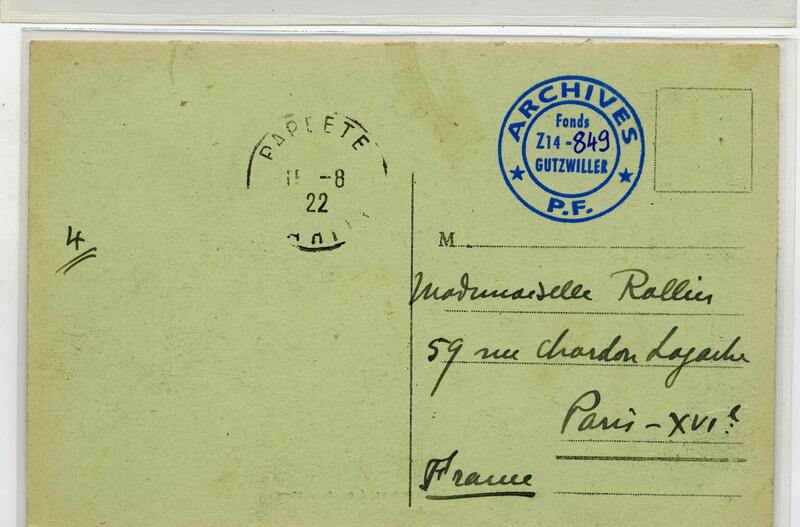 PAPEETE
-8
22
ARCHIVES
Fonds
Z14-849
GUTZWILLER
P.F.
4
M
Mademoiselle Rollin
59 rue Chardon Lagache
Paris - XVIe
France